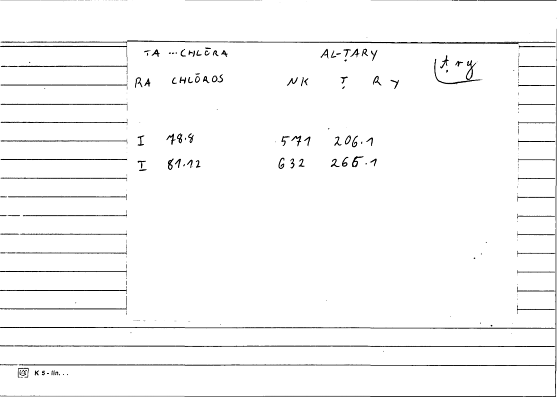 TA ...CHLŌRA AL-ṬARY ṭry
RA CHLŌROS NK Ṭ R Y
I 78.8 571 206.1
I 81.12 632 265.1
K 5 - lin. . .